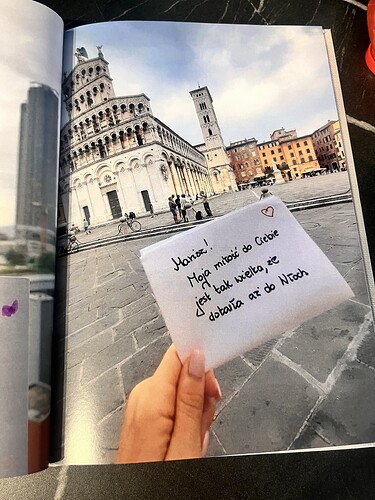 Mariusz!
Moja miłość do Ciebie
jest tak wielka, że
dotarła aż do Włoch